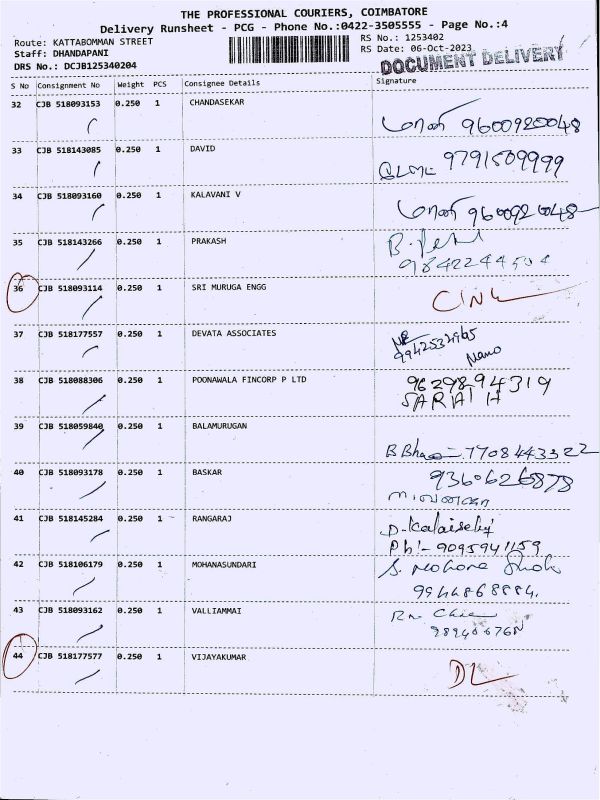 THE PROFESSIONAL COURIERS, COIMBATORE
Delivery Runsheet - PCG - Phone No.:0422-3505555 - Page No.:4
Route: KATTABOMMAN STREET
RS No.: 1253402
Staff: DHANDAPANI
RS Date: 06-Oct-2023
DRS No.: DCJB125340204
DOCUMENT DELIVERY
S No Consignment No Weight PCS Consignee Details Signature
32 CJB 518093153 0.250 1 CHANDASEKAR
மாலினி 9600920048
33 CJB 518143085 0.250 1 DAVID
9791509999
34 CJB 518093160 0.250 1 KALAVANI V
மாலினி 9600920048
35 CJB 518143266 0.250 1 PRAKASH
9842244504
36 CJB 518093114 0.250 1 SRI MURUGA ENGG
37 CJB 518177557 0.250 1 DEVATA ASSOCIATES
38 CJB 518088306 0.250 1 POONAWALA FINCORP P LTD 9629894319
SARATH
39 CJB 518059840 0.250 1 BALAMURUGAN
7708443322
40 CJB 518093178 0.250 1 BASKAR 9360626878
41 CJB 518145284 0.250 1 RANGARAJ D.
Ph:- 9095941159
42 CJB 518106179 0.250 1 MOHANASUNDARI S.
9944868884.
43 CJB 518093162 0.250 1 VALLIAMMAI
44 CJB 518177577 0.250 1 VIJAYAKUMAR DL